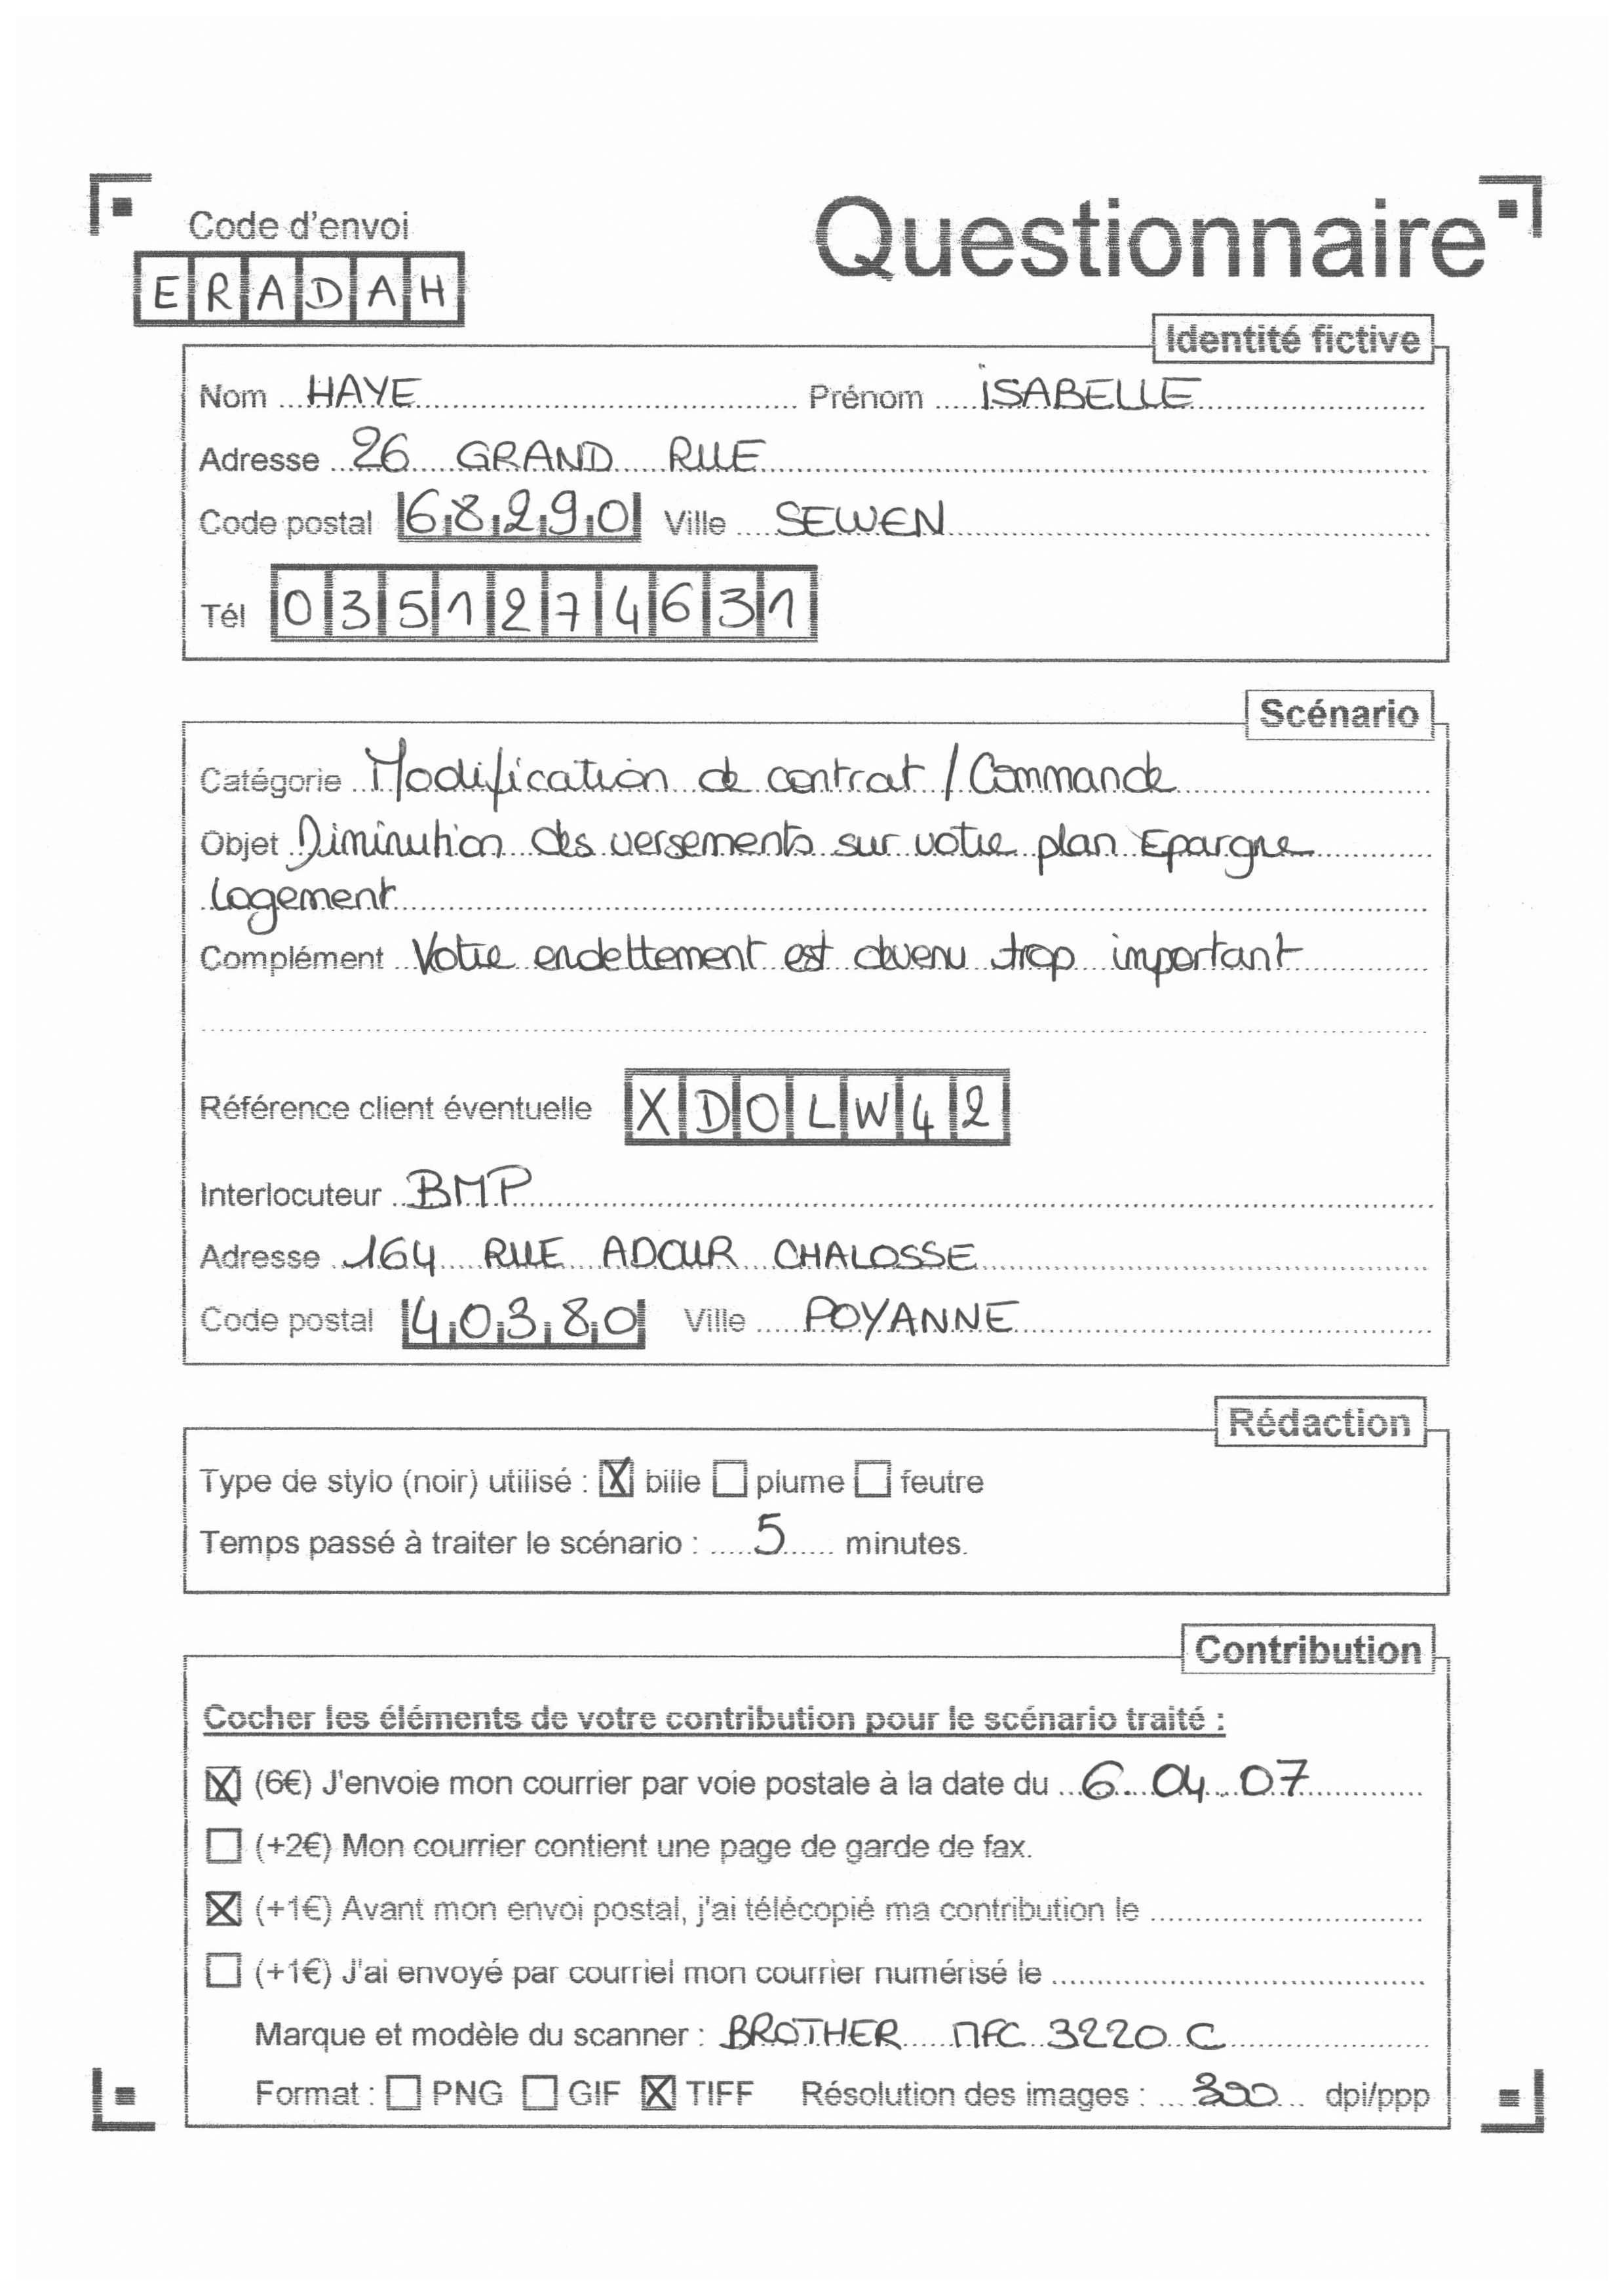 Code d'envoi
Questionnaire
ERADAH
Identité fictive
Nom HAYE Prénom ISABELLE
Adresse 26 GRAND RUE
Code postal 68290 Ville SEWEN
Tél 0351274631
Scénario
Catégorie Modification de contrat / Commande
Objet Diminution des versements sur votre plan Epargne
Logement
Complément Votre endettement est devenu trop important
Référence client éventuelle XDOLW42
Interlocuteur BMP
Adresse 164 RUE ADOUR CHALOSSE
Code postal 40380 Ville POYANNE
Rédaction
Type de stylo (noir) utilisé : X bille plume feutre
Temps passé à traiter le scénario : 5 minutes.
Contribution
Cocher les éléments de votre contribution pour le scénario traité :
X (6€) J'envoie mon courrier par voie postale à la date du 6.04.07
(+2€) Mon courrier contient une page de garde de fax.
X (+1€) Avant mon envoi postal, j'ai télécopié ma contribution le
(+1€) J'ai envoyé par courriel mon courrier numérisé le
Marque et modèle du scanner : BROTHER MFC 3220 C
Format : PNG GIF X TIFF Résolution des images : 300 dpi/ppp